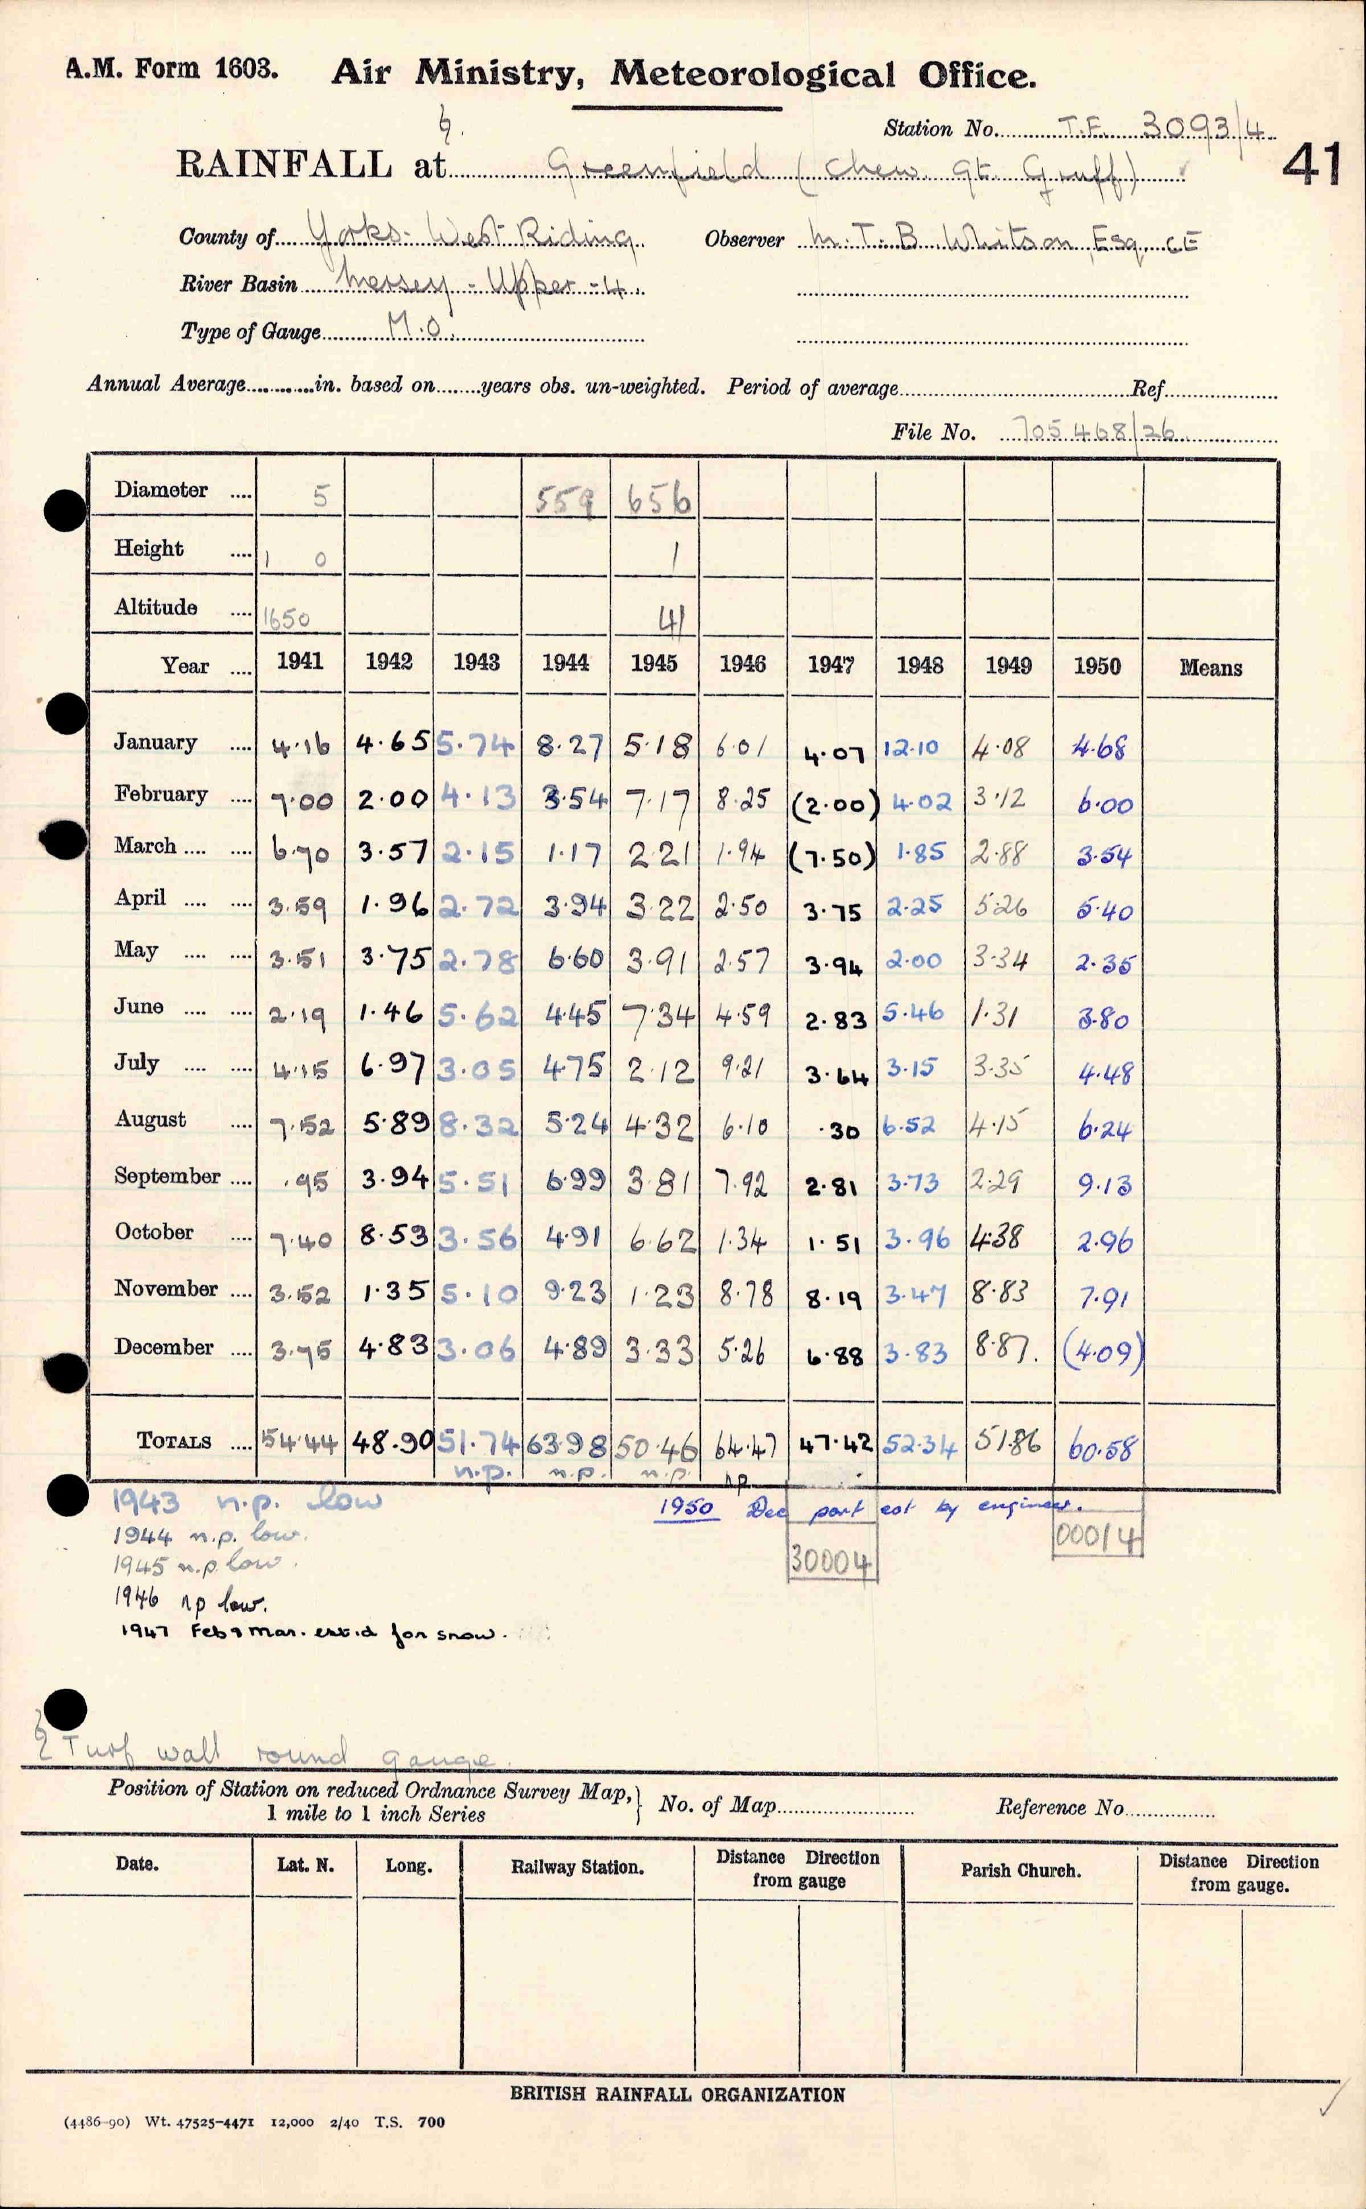 A.M. Form 1603. Air Ministry, Meteorological Office.
Station No. T.F. 3093/4
41
RAINFALL at Greenfield (Chew Gt. Gruff)
County of Yorks. West Riding Observer M.T.B. Whitson, Esq. CE
River Basin Mersey - Upper - 4.
Type of Gauge M.O.
Annual Average in. based on years obs. un-weighted. Period of average Ref.
File No. 705468/26
Diameter .... 5 559 656
Height .... 1 0 1
Altitude .... 1650 41
Year .... 1941 1942 1943 1944 1945 1946 1947 1948 1949 1950 Means
January .... 4.16 4.65 5.74 8.27 5.18 6.01 4.07 12.10 4.08 4.68
February .... 7.00 2.00 4.13 3.54 7.17 8.25 (2.00) 4.02 3.12 6.00
March .... .... 6.70 3.57 2.15 1.17 2.21 1.94 (7.50) 1.85 2.88 3.54
April .... .... 3.59 1.96 2.72 3.94 3.22 2.50 3.75 2.25 5.26 5.40
May .... .... 3.51 3.75 2.78 6.60 3.91 2.57 3.94 2.00 3.34 2.35
June .... .... 2.19 1.46 5.62 4.45 7.34 4.59 2.83 5.46 1.31 3.80
July .... .... 4.15 6.97 3.05 4.75 2.12 9.21 3.64 3.15 3.35 4.48
August .... 7.52 5.89 8.32 5.24 4.32 6.10 .30 6.52 4.15 6.24
September .... .95 3.94 5.51 6.99 3.81 7.92 2.81 3.73 2.29 9.13
October .... 7.40 8.53 3.56 4.91 6.62 1.34 1.51 3.96 4.38 2.96
November .... 3.52 1.35 5.10 9.23 1.23 8.78 8.19 3.47 8.83 7.91
December .... 3.75 4.83 3.06 4.89 3.33 5.26 6.88 3.83 8.87. (4.09)
TOTALS .... 54.44 48.90 51.74 63.98 50.46 64.47 47.42 52.34 51.86 60.58
n.p. n.p. n.p. np
1943 n.p. low
1950 Dec part est by engineer.
1944 n.p. low.
00014
1945 n.p. low.
30004
1946 np low.
1947 Feb & Mar. est.d for snow.
Turf wall round gauge.
Position of Station on reduced Ordnance Survey Map,
1 mile to 1 inch Series
No. of Map Reference No.
Date. Lat. N. Long. Railway Station. Distance from gauge Direction Parish Church. Distance Direction from gauge.
BRITISH RAINFALL ORGANIZATION
(4486-90) Wt. 47525-4471 12,000 2/40 T.S. 700